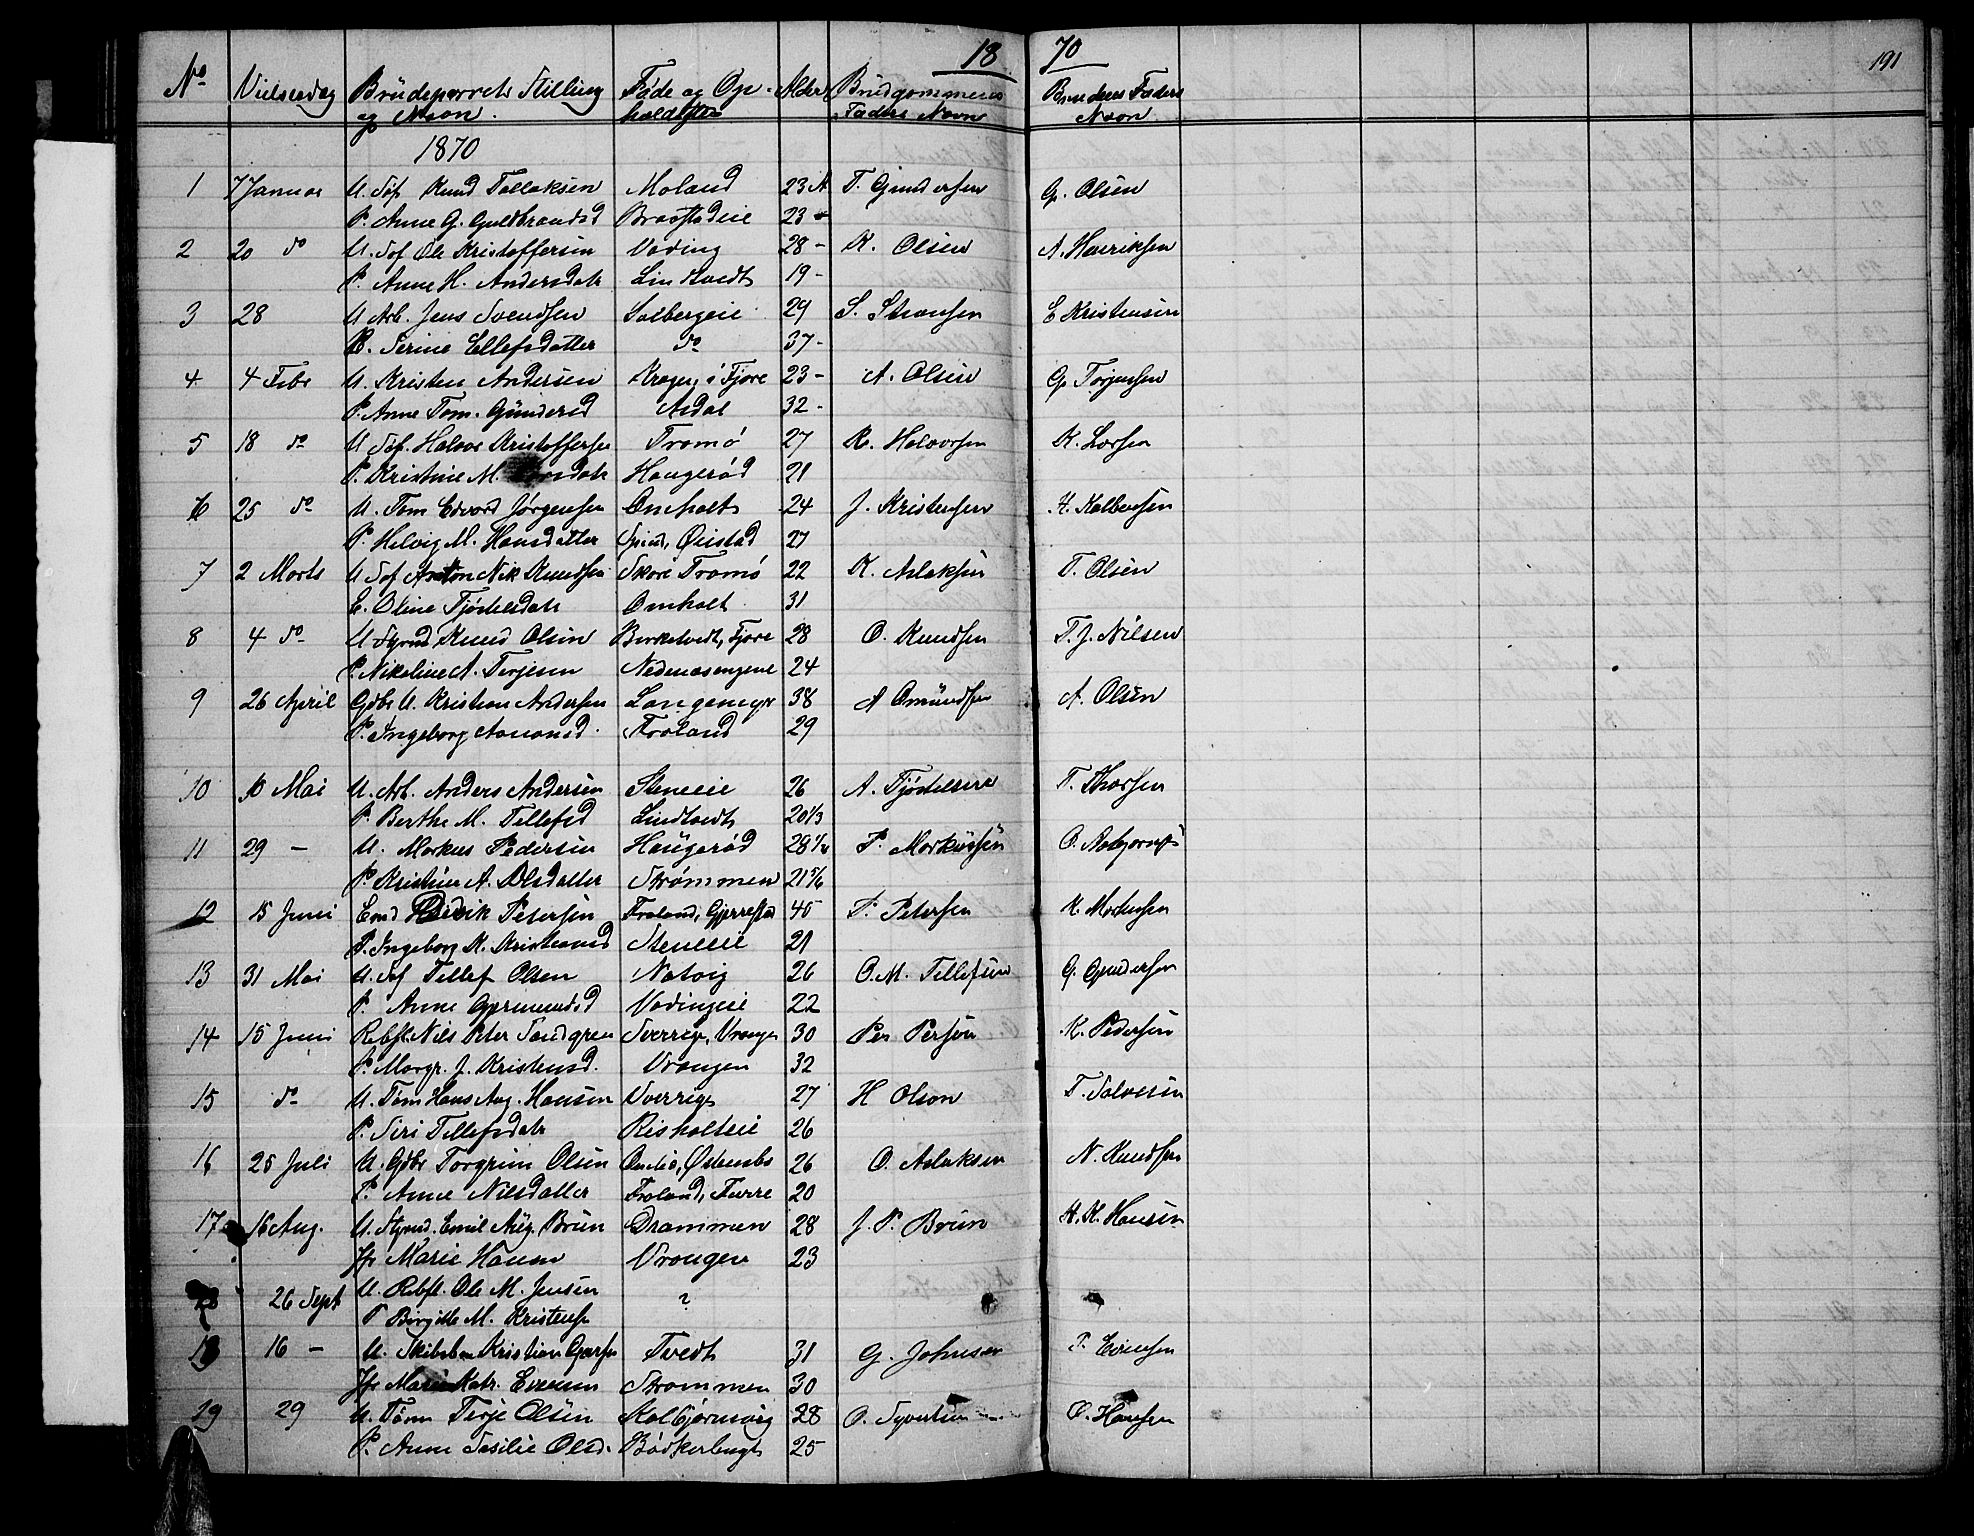 18 70 191
No Vielsesdag Brudeparrets Stilling og Navn. Føde og Opholdssted Alder Brudgommens Faders Navn Brudens Faders Navn
1870
1 7 Januar U. Søf Knud Tallaksen Moland 23 A T. Gundersen G. Olsen
P. Anne G. Guldbrandsd Brastadeie 23
2 20 do U. Søf Ole Kristoffersen Vading 28 - K. Olsen A. Henriksen
P. Anne H. Andersdatr Lindtvedt 19 -
3 28 U Arb. Jens Svendsen Solbergeie 29 S. E Kristensen
Serine Ellefsdatter do 37 -
4 4 Febr U. Kristen Andersen i Fjære 23 - A. Olsen G. Torjensen
P. Anne Tom. Gundersd Asdal 32 -
5 18 do U Søf. Halvor Kristoffersen Tromø 27 K. Halvorsen K. Larsen
P. Kristine M. Haugerød 21
6 25 do U. Tøm Edvard Jørgensen Omholt 24 J. Kristensen H.
P. Helvig M. Hansdatter Øiestad 27
7 2 Marts U Søf Anton Nik Knudsen Skare Tromø 22 K. Aslaksen T. Olsen
E. Oline Fjøstelsdatr Omholt 31
8 4 do U Styrmd Knud Olsen Birketvedt, Fjære 28 O. Knudsen T. J. Nilsen
P. Nikoline A. Terjesen Nedenæsengene 24
9 26 April Gdbr U. Kristian Andersen Langemyr 38 A Omundsen A. Olsen
P. Ingeborg Aanonsd. Froland 29
10 10 Mai U. Arb. Anders Andersen Steneeie 26 A. Fjøstelsen T. Thorsen
P. Berthe M. Tellefsd Lindtvedt 20 1/3
11 29 - U. Markus Pedersen Haugerød 28 P. Markussen O.
P. Kristine A. Olsdatter Strømmen 21 5/6
12 15 Juni Emd Petersen Froland, Gjerrestad 45 P. Petersen K. Mortensen
P. Ingeborg K. Steneeie 21
13 31 Mai U. Søf Tellef Olsen Natvig 26 O. M. Tellefsen G. Gundersen
P. Anne Vadingeie 22
14 15 Juni Rebsl. Nils Peter Sandgren Sverrig, Vrangen 30 Per Person K. Pedersen
P. Margr. J. Kristensd. Vrangen 32
15 do U. Tøm Hans Aug. Hansen Sverrig 27 H Olson T. Salvesen
P. Siri Tellefsdatr Risholteie 26
16 25 Juli U. Gdbr Torgrim Olsen 26 O. Aslaksen N. Knudsen
P. Anne Nilsdatter Froland, Furre 20
17 16 Aug. U. Styrmd. Emil Aug. Brun Drammen 28 J. P. Brun H. K. Hansen
Jfr Marie Hansen Vrangen 23
18 26 Sept U. Rebsl. Ole M. Jensen ?
P Birgitte M. Kristensen
18 16 - U. Kristian Tvedt 31 G. Johnsen T. Evensen
Jfr Marie Katr. Evensen Strømmen 30
19 29 U. Tøm Terje Olsen Kolbjørnsvig 28 O. Syvertsen O. Hansen
P. Anne Olsd. Bødkerbugt 25